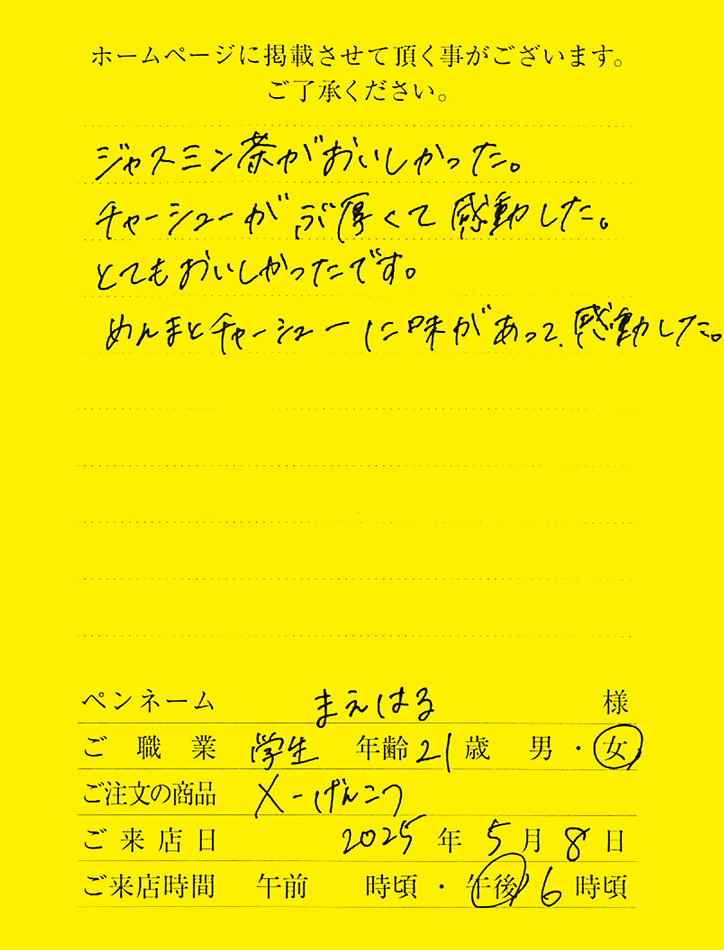 ホームページに掲載させて頂く事がございます。
ご了承ください。
ジャスミン茶がおいしかった。
チャーシューがぶ厚くて感動した。
とてもおいしかったです。
めんまとチャーシューに味があって、感動した。
ペンネーム まえはる 様
ご職業 学生 年齢 21 歳 男・女
ご注文の商品 メーげんこつ
ご来店日 2025 年 5 月 8 日
ご来店時間 午前 時頃・午後 6 時頃